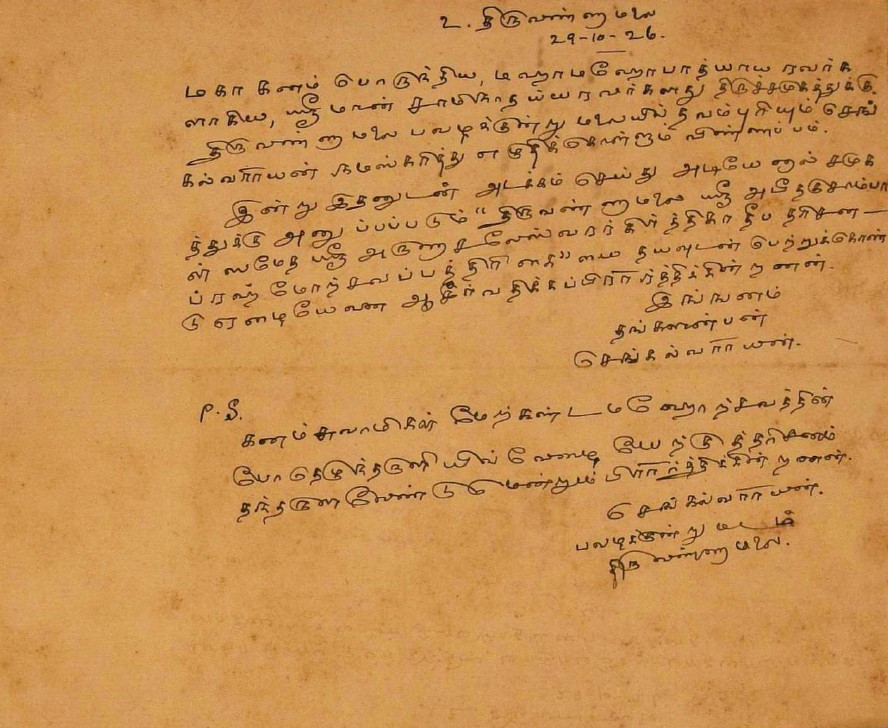 உ. திருவண்ணாமலை
29-10-26.
மகா கனம் பொருந்திய, மஹாமஹோபாத்யாய ரவர்க
ளாகிய, ஸ்ரீமான் சாமிநாதய்யரவர்களது திருச்சமுகத்துக்கு.
திருவண்ணாமலை பவழக்குன்று மலையில் தவம்புரியும் செங்
கல்வராயன் நமஸ்கரித்து எழுதிக்கொள்ளும் விண்ணப்பம்.
இன்று இதனுடன் அடக்கம் செய்து அடியேனால் சமுக
த்துக்கு அனுப்பப்படும் "திருவண்ணாமலை ஸ்ரீ அபீதகுசாம்பா
ள் ஸமேத ஸ்ரீ அருணாசலேஸ்வரர் கார்த்திகை தீப தரிசன —
ப்ரஹ்மோற்சவப்பத்திரிகை" யை தயவுடன் பெற்றுக்கொண்
டு ஏழையேனை ஆசீர்வதிக்கப்பிரார்த்திக்கின்றனன்.
இங்ஙனம்
தங்களன்பன்
செங்கல்வராயன்.
P.S.
கனம் சுவாமிகள் மேற்கண்ட மஹோற்சவத்தின்
போதெழுந்தருளியிவ் வேழையேற்குத்தரிசனம்
தந்தருளவேண்டுமென்றும் பிரார்த்திக்கின்றனன்.
செங்கல்வராயன்.
பவழக்குன்று மடம்
திருவண்ணாமலை.